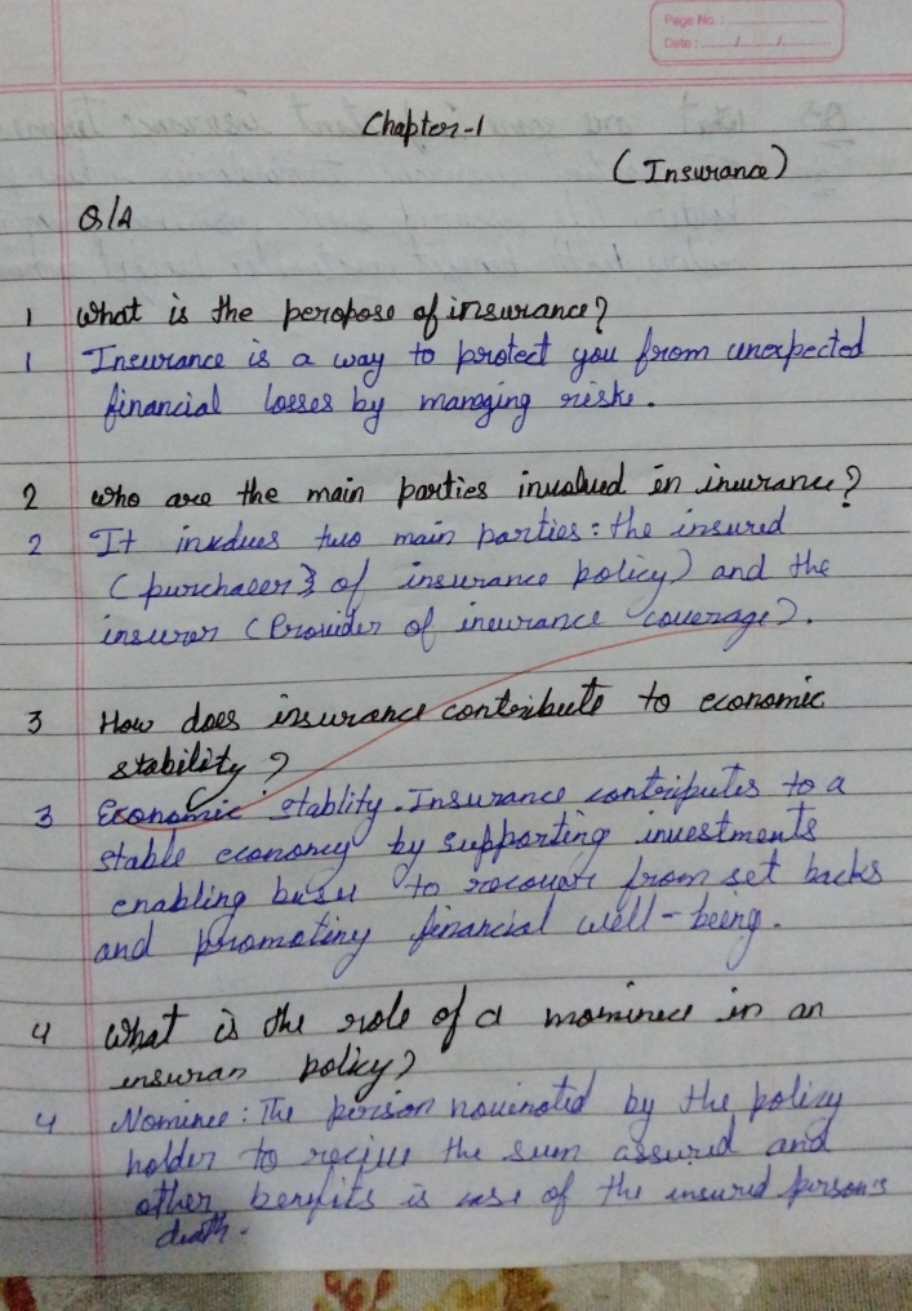 Page No. :
Date : / /
Chapter-1
(Insurance)
Q/A
1 What is the peropose of insurance?
1 Insurance is a way to protect you from unexpected
financial losses by managing risks.
2 who are the main parties involved in insurance?
2 It incdues two main parties: the insured
(purchaser} of insurance policy) and the
insurer (Provider of insurance coverage).
3 How does insurance contribute to economic
stability?
3 Economic stablity. Insurance contributes to a
stable economy by supporting investments
enabling busu to recover from set backs
and promoting financial well-being.
4 What is the role of a nominee in an
insuran policy?
4 Nominee: The person nominated by the policy
holder to recive the sum assured and
other benefits is case of the insured person's
death.